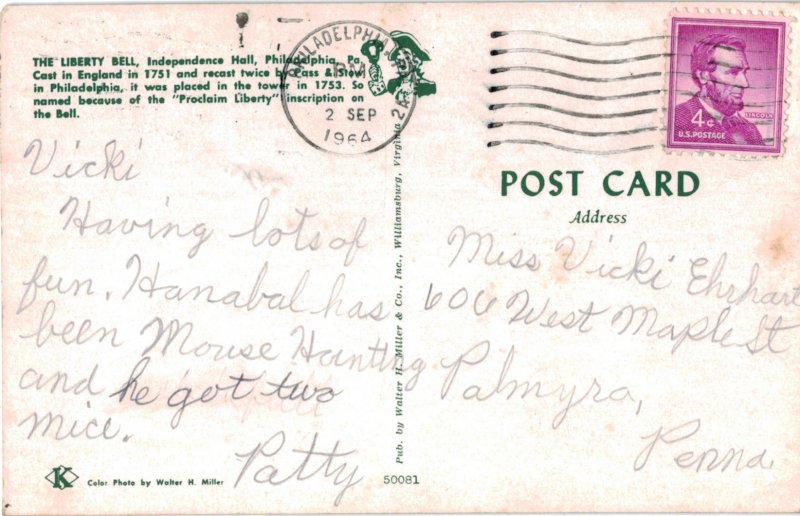 THE LIBERTY BELL, Independence Hall, Philadelphia, Pa.
Cast in England in 1751 and recast twice by Pass & Stow
in Philadelphia, it was placed in the tower in 1753. So
named because of the "Proclaim Liberty" inscription on
the Bell.
PHILADELPHIA
PM
2 SEP
1964
4¢
LINCOLN
U.S. POSTAGE
POST CARD
Address
Vicki
Having lots of
fun. Hanabal has
been Mouse Hunting
and he got two
mice.
Patty
Miss Vicki Ehrhart
606 West Maple St
Palmyra,
Penna.
Pub. by Walter H. Miller & Co., Inc., Williamsburg, Virginia
K
Color Photo by Walter H. Miller
50081